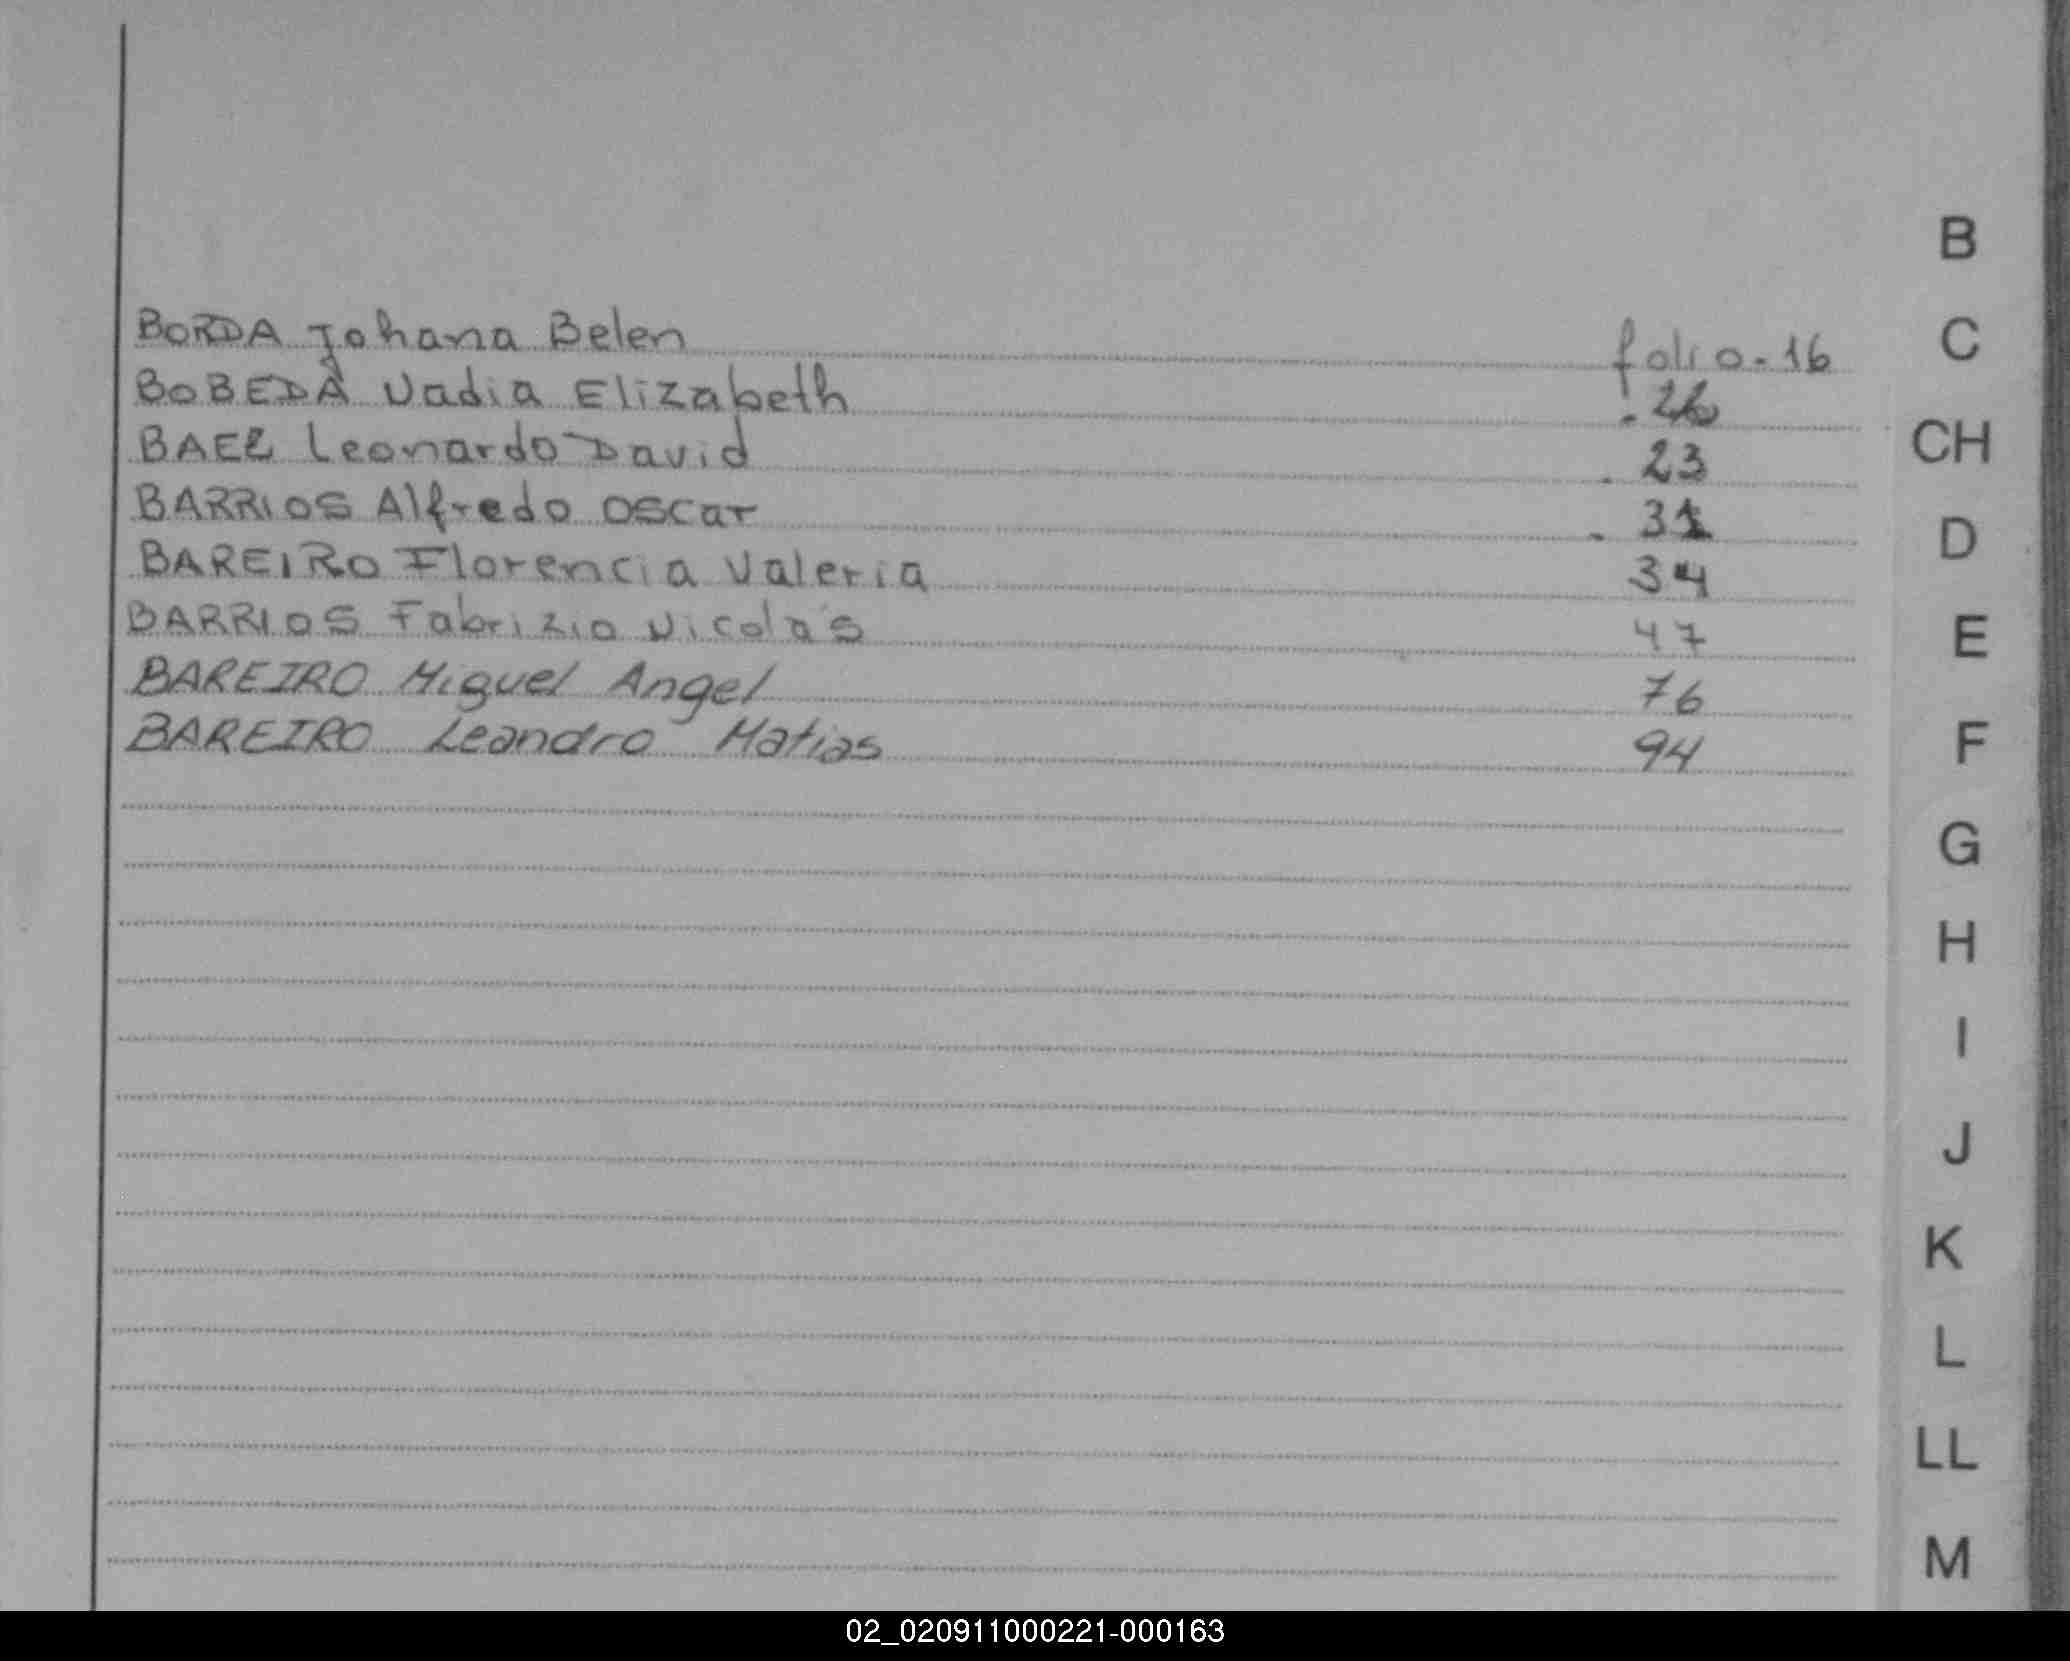 B
BORDA Johana Belen folio-16
C
BOBEDA Nadia Elizabeth
BAEZ Leonardo David 23
CH
BARRIOS Alfredo Oscar 31
D
BAREIRO Florencia Valeria 34
BARRIOS Fabrizio Nicolás 47
E
BAREIRO Miguel Angel 76
BAREIRO Leandro Matias 94
F
G
H
I
J
K
L
LL
M
02_020911000221-000163